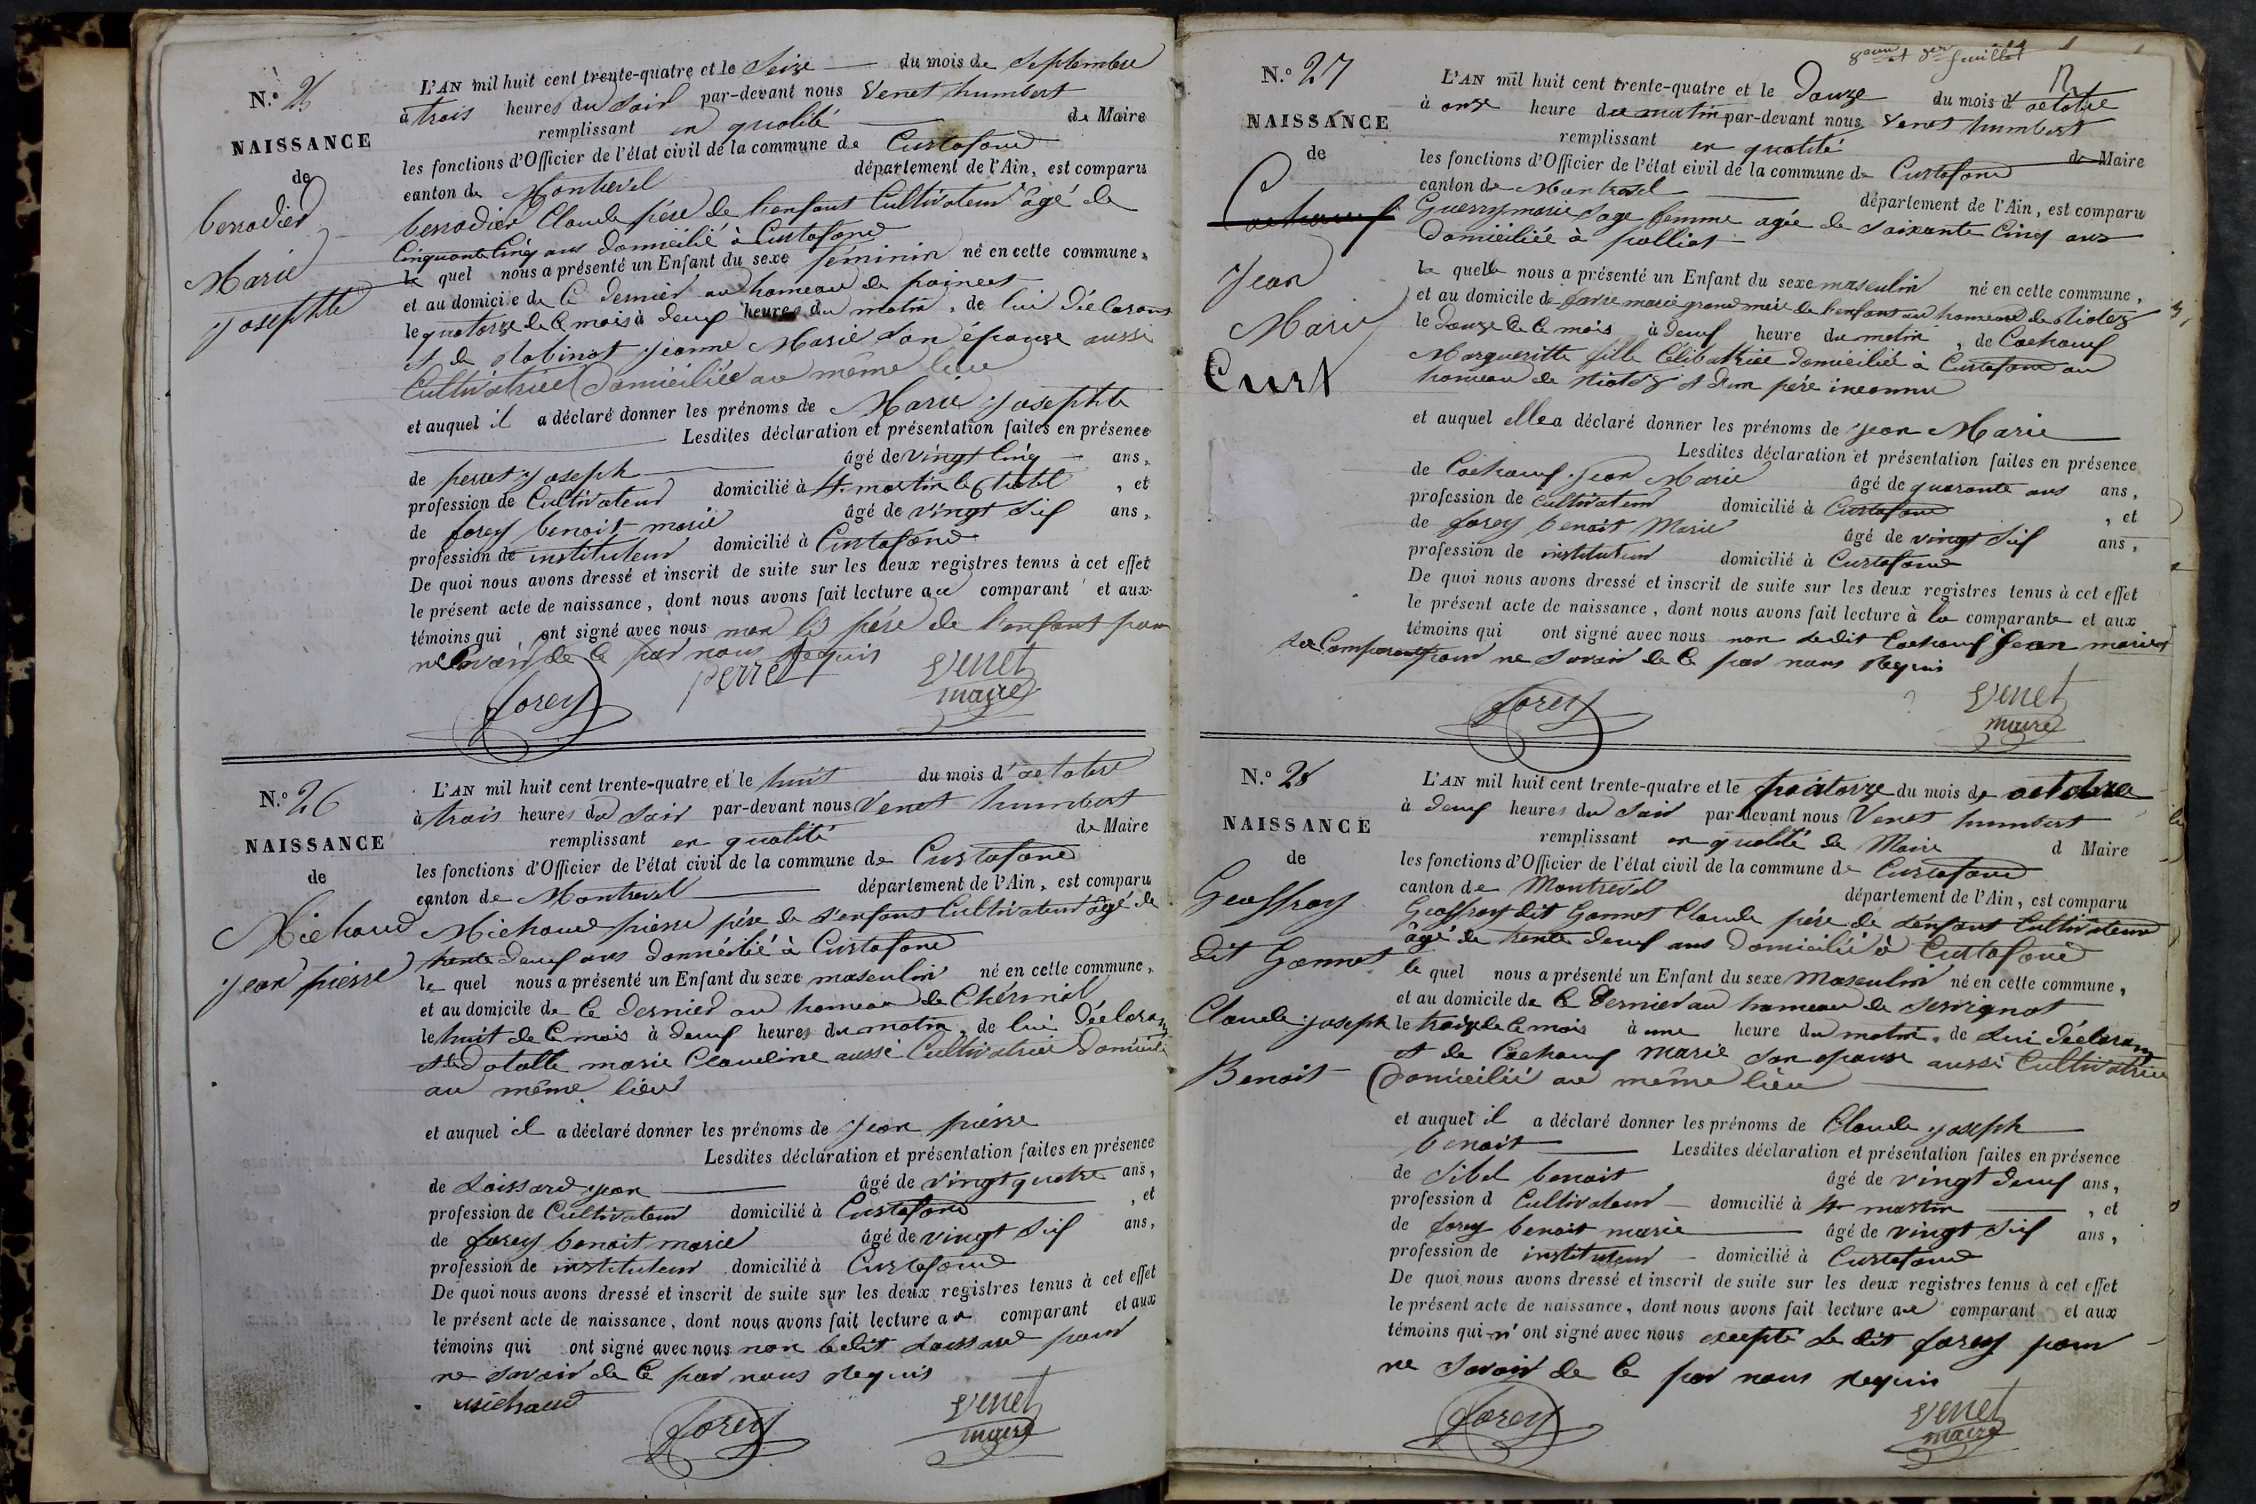 N.o 25
NAISSANCE
de
Marie
Josephte
L'AN mil huit cent trente-quatre et le Seize du mois de Septembre
à trois heures du Soir par-devant nous Venet humbert
remplissant en qualité de Maire
les fonctions d'Officier de l'état civil de la commune de Curtafond
canton de Montrevel département de l'Ain, est comparu
Claude père de l'enfant Cultivateur âgé de
Cinquante Cinq ans domicilié à Curtafond
le quel nous a présenté un Enfant du sexe féminin né en cette commune,
et au domicile de Ce dernier au hameau de
le quatorze de Ce mois à deux heures du matin, de lui déclarant
et de Robinot Jeanne Marie Son épouse aussi
Cultivatrice domiciliée au même lieu
et auquel il a déclaré donner les prénoms de Marie Josephte
Lesdites déclaration et présentation faites en présence
de perret Joseph âgé de vingt Cinq ans,
profession de Cultivateur domicilié à St. martin le Chatel, et
de forey benoit marie âgé de vingt Six ans,
profession de instituteur domicilié à Curtafond
De quoi nous avons dressé et inscrit de suite sur les deux registres tenus à cet effet
le présent acte de naissance, dont nous avons fait lecture au comparant et aux
témoins qui ont signé avec nous non le père de l'enfant pour
ne Savoir de Ce par nous Requis
forey perret Venet
maire
N.o 26
NAISSANCE
de
Michaud
Jean pierre
L'AN mil huit cent trente-quatre et le huit du mois d'octobre
à trois heures du Soir par-devant nous Venet humbert
remplissant en qualité de Maire
les fonctions d'Officier de l'état civil de la commune de Curtafond
canton de Montrevel département de l'Ain, est comparu
Michaud pierre père de l'enfant Cultivateur âgé de
trente deux ans domicilié à Curtafond
le quel nous a présenté un Enfant du sexe masculin né en cette commune,
et au domicile de Ce dernier au hameau de
le huit de Ce mois à deux heures du matin, de lui déclarant
marie Claudine aussi Cultivatrice domiciliée
au même lieu
et auquel il a déclaré donner les prénoms de Jean pierre
Lesdites déclaration et présentation faites en présence
de Loissard Jean âgé de vingt quatre ans,
profession de Cultivateur domicilié à Curtafond, et
de forey benoit marie âgé de vingt Six ans,
profession de instituteur domicilié à Curtafond
De quoi nous avons dressé et inscrit de suite sur les deux registres tenus à cet effet
le présent acte de naissance, dont nous avons fait lecture au comparant et aux
témoins qui ont signé avec nous non ledit Loissard pour
ne Savoir de Ce par nous Requis
michaud
forey Venet
maire
N.o 27
NAISSANCE
de
Cochouf
Jean
Marie
Curt
L'AN mil huit cent trente-quatre et le douze du mois d'octobre
à onze heure du matin par-devant nous Venet humbert
remplissant en qualité de Maire
les fonctions d'Officier de l'état civil de la commune de Curtafond
canton de Montrevel département de l'Ain, est comparu
Guerry marie Sage femme agée de Soixante Cinq ans
domiciliée à polliat
la quelle nous a présenté un Enfant du sexe masculin né en cette commune,
et au domicile de marie grand mère de l'enfant au hameau de
le douze de Ce mois à deux heure du matin, de Cochouf
Margueritte fille Célibatrice domiciliée à Curtafond au
hameau de et d'un père inconnu
et auquel elle a déclaré donner les prénoms de Jean Marie
Lesdites déclaration et présentation faites en présence
de Cochouf Jean Marie âgé de quarante ans ans,
profession de Cultivateur domicilié à Curtafond, et
de forey benoit Marie âgé de vingt Six ans,
profession de instituteur domicilié à Curtafond
De quoi nous avons dressé et inscrit de suite sur les deux registres tenus à cet effet
le présent acte de naissance, dont nous avons fait lecture à la comparante et aux
témoins qui ont signé avec nous non ledit Cochouf Jean marie et
la Comparante pour ne Savoir de Ce par nous Requis
forey Venet
maire
N.o 28
NAISSANCE
de
Geoffray
dit Gonnet
Claude Joseph
Benoit
L'AN mil huit cent trente-quatre et le quatorze du mois de octobre
à deux heures du Soir par-devant nous Venet humbert
remplissant en qualité de Maire d Maire
les fonctions d'Officier de l'état civil de la commune de Curtafond
canton de Montrevel département de l'Ain, est comparu
Geoffray dit Gonnet Claude père de l'enfant Cultivateur
âgé de trente deux ans domicilié à Curtafond
le quel nous a présenté un Enfant du sexe Masculin né en cette commune,
et au domicile de Ce dernier au hameau de Servignat
le treize de Ce mois à une heure du matin, de Lui déclarant
et de Cochouf Marie Son épouse aussi Cultivatrice
domiciliée au même lieu
et auquel il a déclaré donner les prénoms de Claude Joseph
benoit Lesdites déclaration et présentation faites en présence
de Sibel benoit âgé de vingt deux ans,
profession d Cultivateur domicilié à St martin, et
de forey benoit marie âgé de vingt Six ans,
profession de instituteur domicilié à Curtafond
De quoi nous avons dressé et inscrit de suite sur les deux registres tenus à cet effet
le présent acte de naissance, dont nous avons fait lecture au comparant et aux
témoins qui n'ont signé avec nous excepté le dit forey pour
ne Savoir de Ce par nous Requis
forey Venet
maire